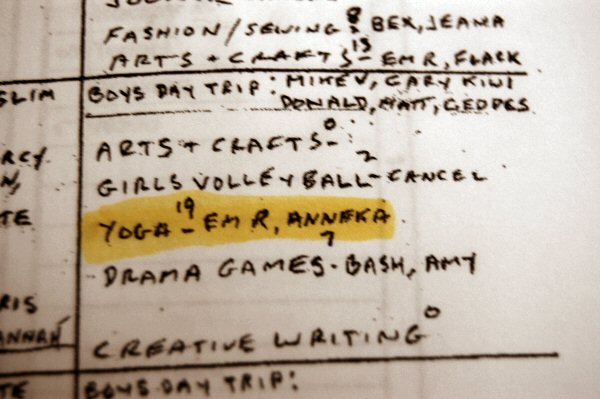 FASHION/SEWING 8 : BEX, JEANA
ARTS + CRAFTS 13 - EM R, FLACK
SLIM BOYS DAY TRIP: MIKE V, GARY KIWI
DONALD, MATT, GEDDES
ARTS + CRAFTS - 0
GIRLS VOLLEYBALL - 2 CANCEL
YOGA 19 - EM R, ANNEKA
DRAMA GAMES 7 - BASH, AMY
CREATIVE WRITING 0
BOYS DAY TRIP: